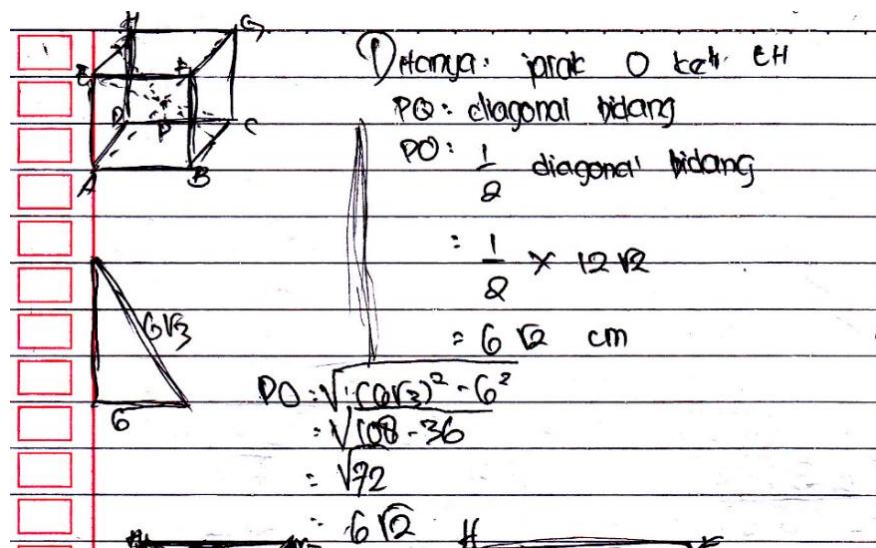 H G
E F
D P C
A B
① Ditanya : jarak O ke EH
PQ : diagonal bidang
PO : 1/2 diagonal bidang
: 1/2 × 12√2
= 6√2 cm
6√3
6
PO : √(6√3)² - 6²
: √108 - 36
: √72
: 6√2
H